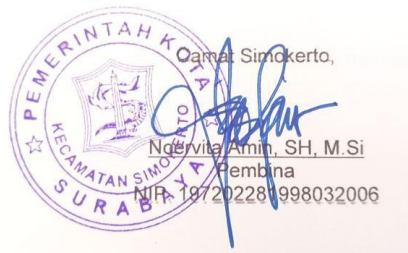 PEMERINTAH KOTA
SURABAYA
KECAMATAN SIMOKERTO
Camat Simokerto,
Noervita Amin, SH, M.Si
Pembina
NIP. 197202281998032006